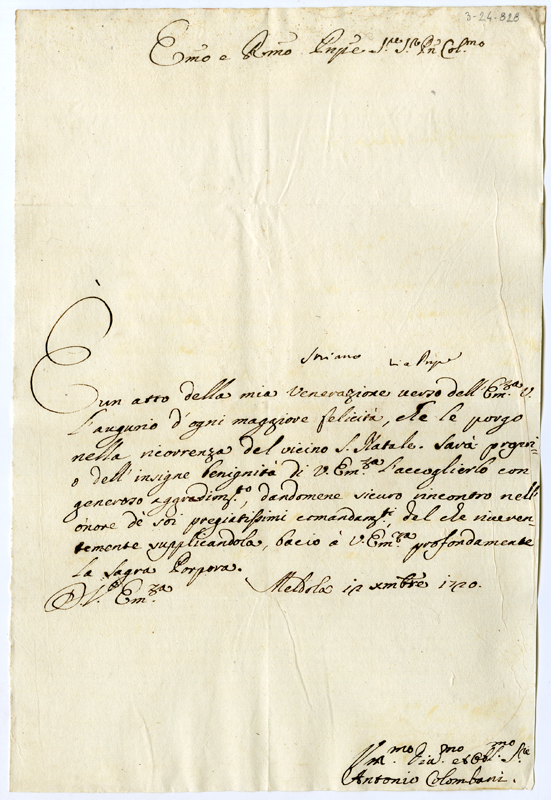 3-24-828
Emo e Rmo Pnpe Sre Sre Pn Colmo
Pnpe
È un atto della mia Venerazione verso dell'Emza V.
l'augurio d'ogni maggiore felicità, che le porgo
nella ricorrenza del vicino S. Natale. Sarà propri-
o dell'insigne benignità di V. Emza l'accoglierlo con
generoso aggradimto, dandomene sicuro rincontro nell'
onore de' soi pregiatissimi comandamti, del che riveren-
temente supplicandola, bacio à V. Emza profondamente
la Sagra Porpora.
Di V. Emza
Meldola 12 xmbre 1720.
Vmmo Diumo et Obbmo Sre
Antonio Colombani.